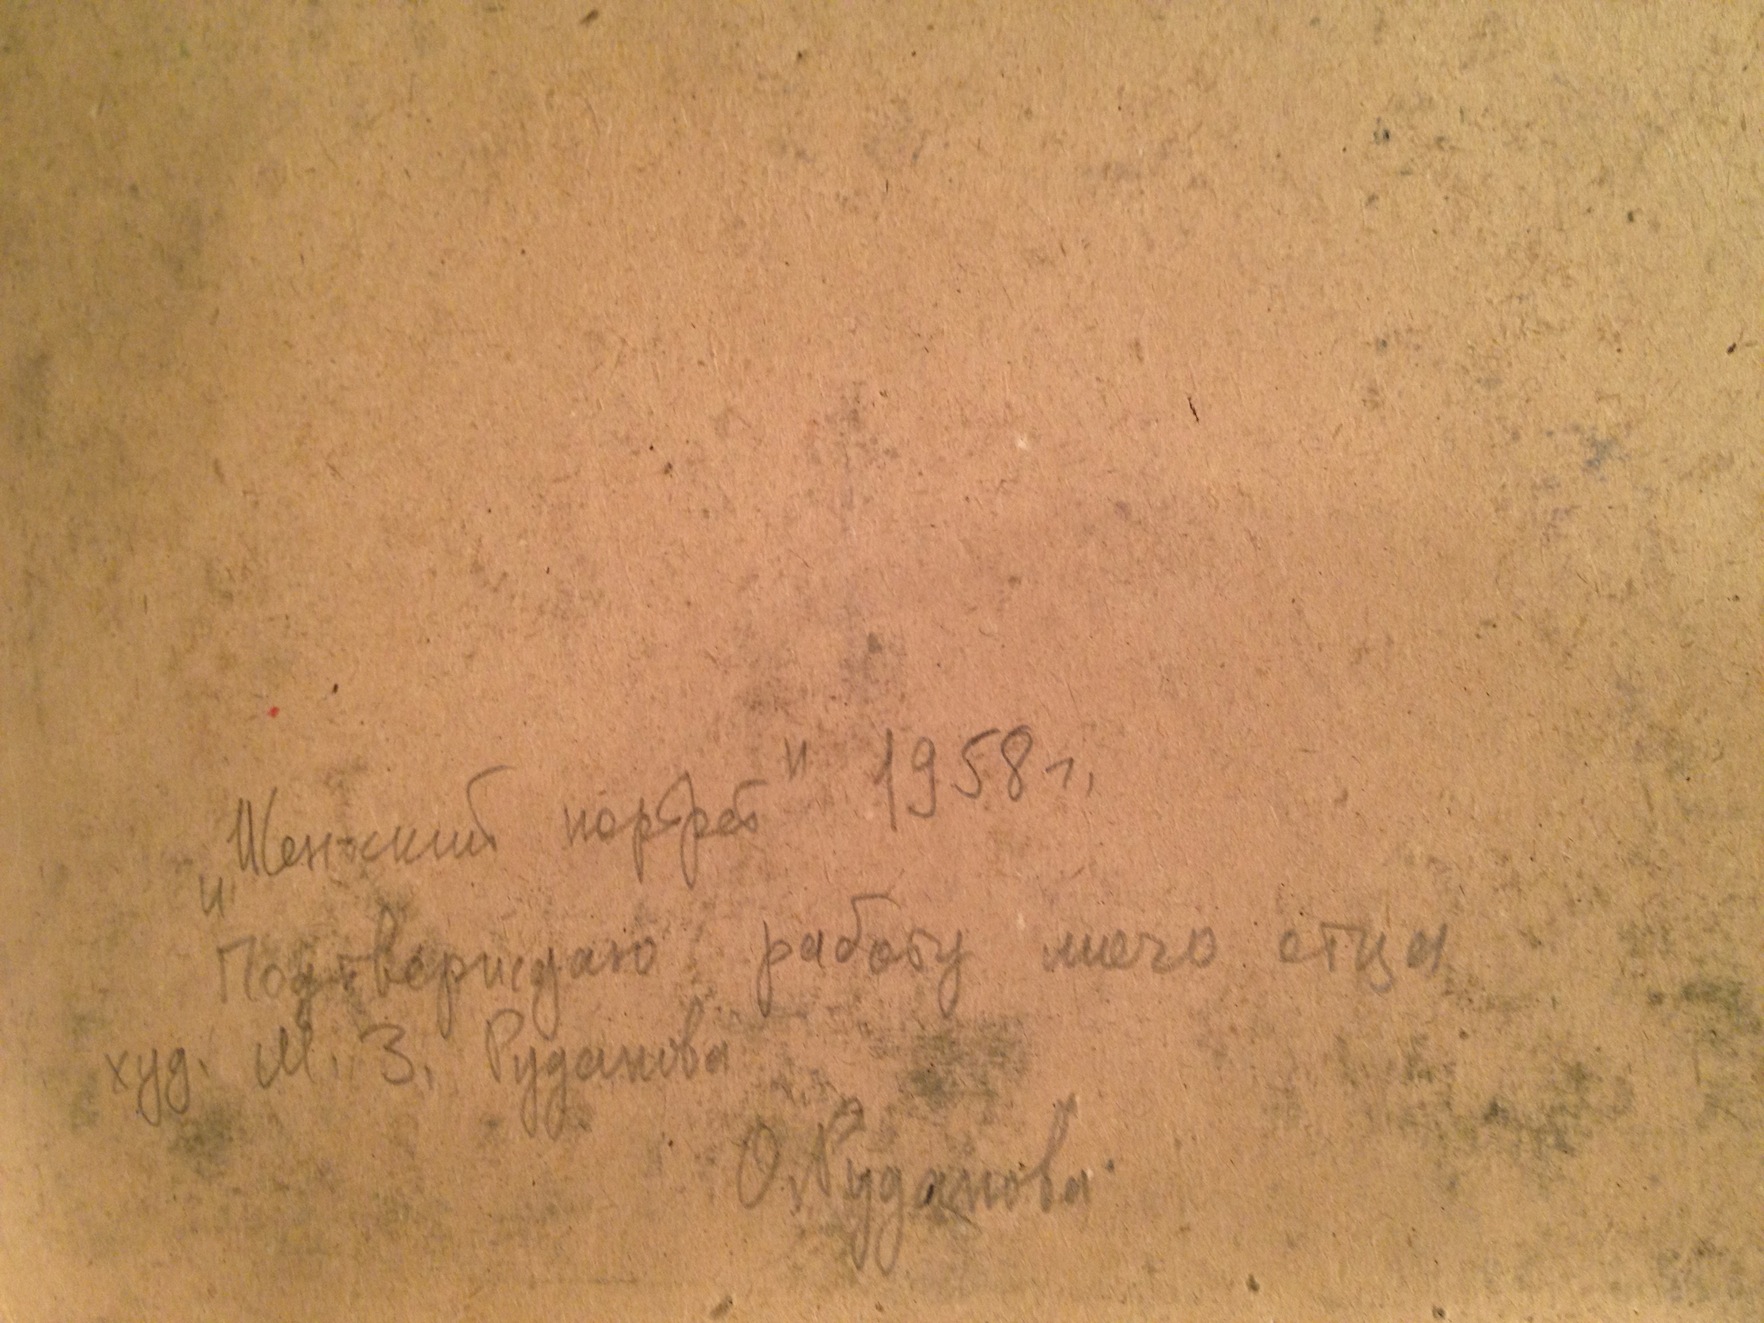 "Женский портрет" 1958 г.
Подтверждаю работу моего отца
худ. М. З. Руданова
О. Руданова